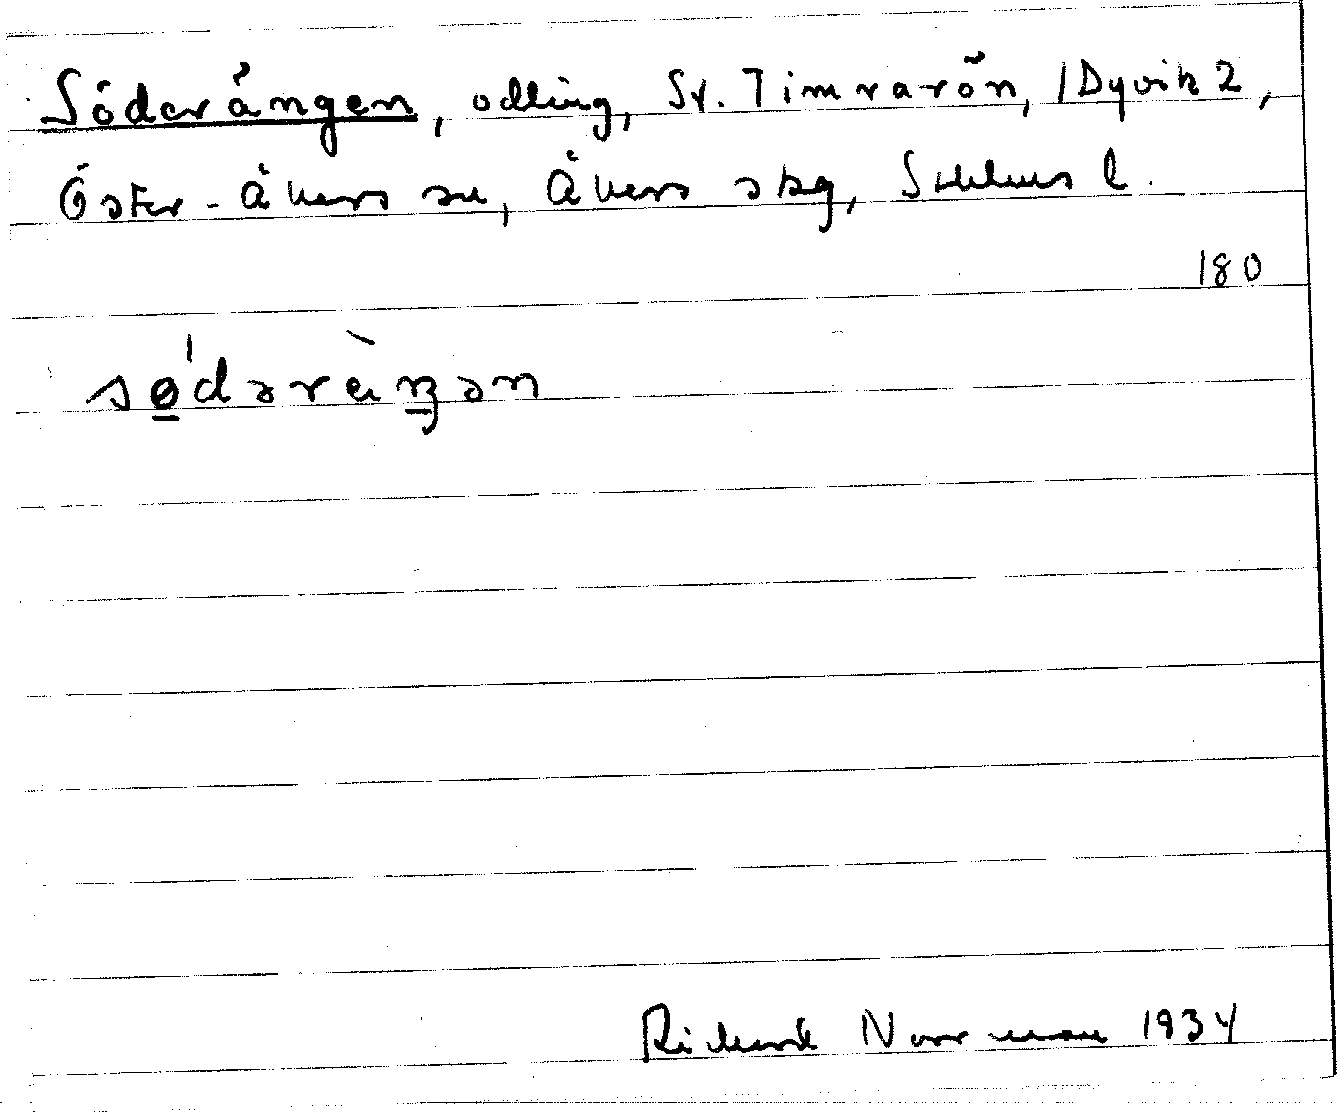 Söderängen, odling, St. Timrarön, /Dyvik 2,
Öster-Åkers sn, Åkers skg, Sthlms l.
180
sødəräŋən
Richard Norrman 1934